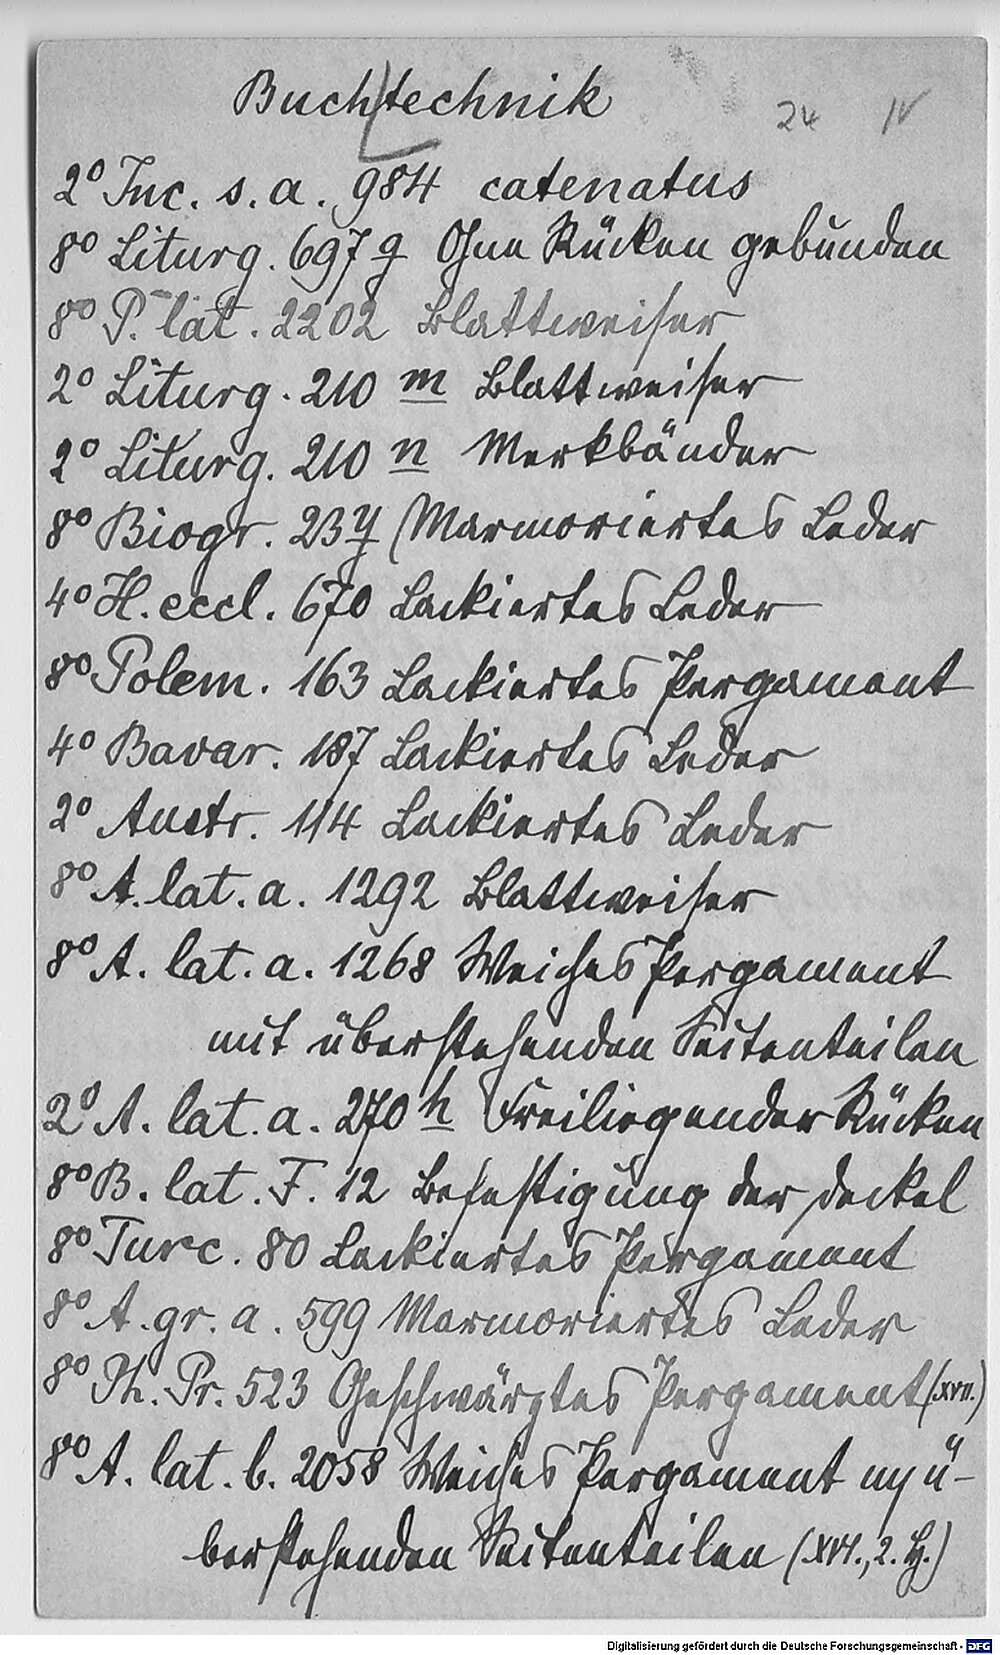 Buchtechnik
24 IV
2° Inc. s. a. 984 catenatus
8° Liturg. 697 g Ohne Rücken gebunden
8° P. lat. 2202 Blattweiser
2° Liturg. 210 m Blattweiser
2° Liturg. 210 n Merkbänder
8° Biogr. 23 y Marmoriertes Leder
4° H. eccl. 670 Lackiertes Leder
8° Polem. 163 Lackiertes Pergament
4° Bavar. 187 Lackiertes Leder
2° Austr. 114 Lackiertes Leder
8° A. lat. a. 1292 Blattweiser
8° A. lat. a. 1268 Weiches Pergament
mit überstehenden Seitenteilen
2° A. lat. a. 270 h Freiliegender Rücken
8° B. lat. F. 12 Befestigung der Deckel
8° Turc. 80 Lackiertes Pergament
8° A. gr. a. 599 Marmoriertes Leder
8° Ph. Pr. 523 Geschwärztes Pergament (XVII.)
8° A. lat. b. 2058 Weiches Pergament m ü-
berstehenden Seitenteilen (XVI., 2. H.)
Digitalisierung gefördert durch die Deutsche Forschungsgemeinschaft - DFG